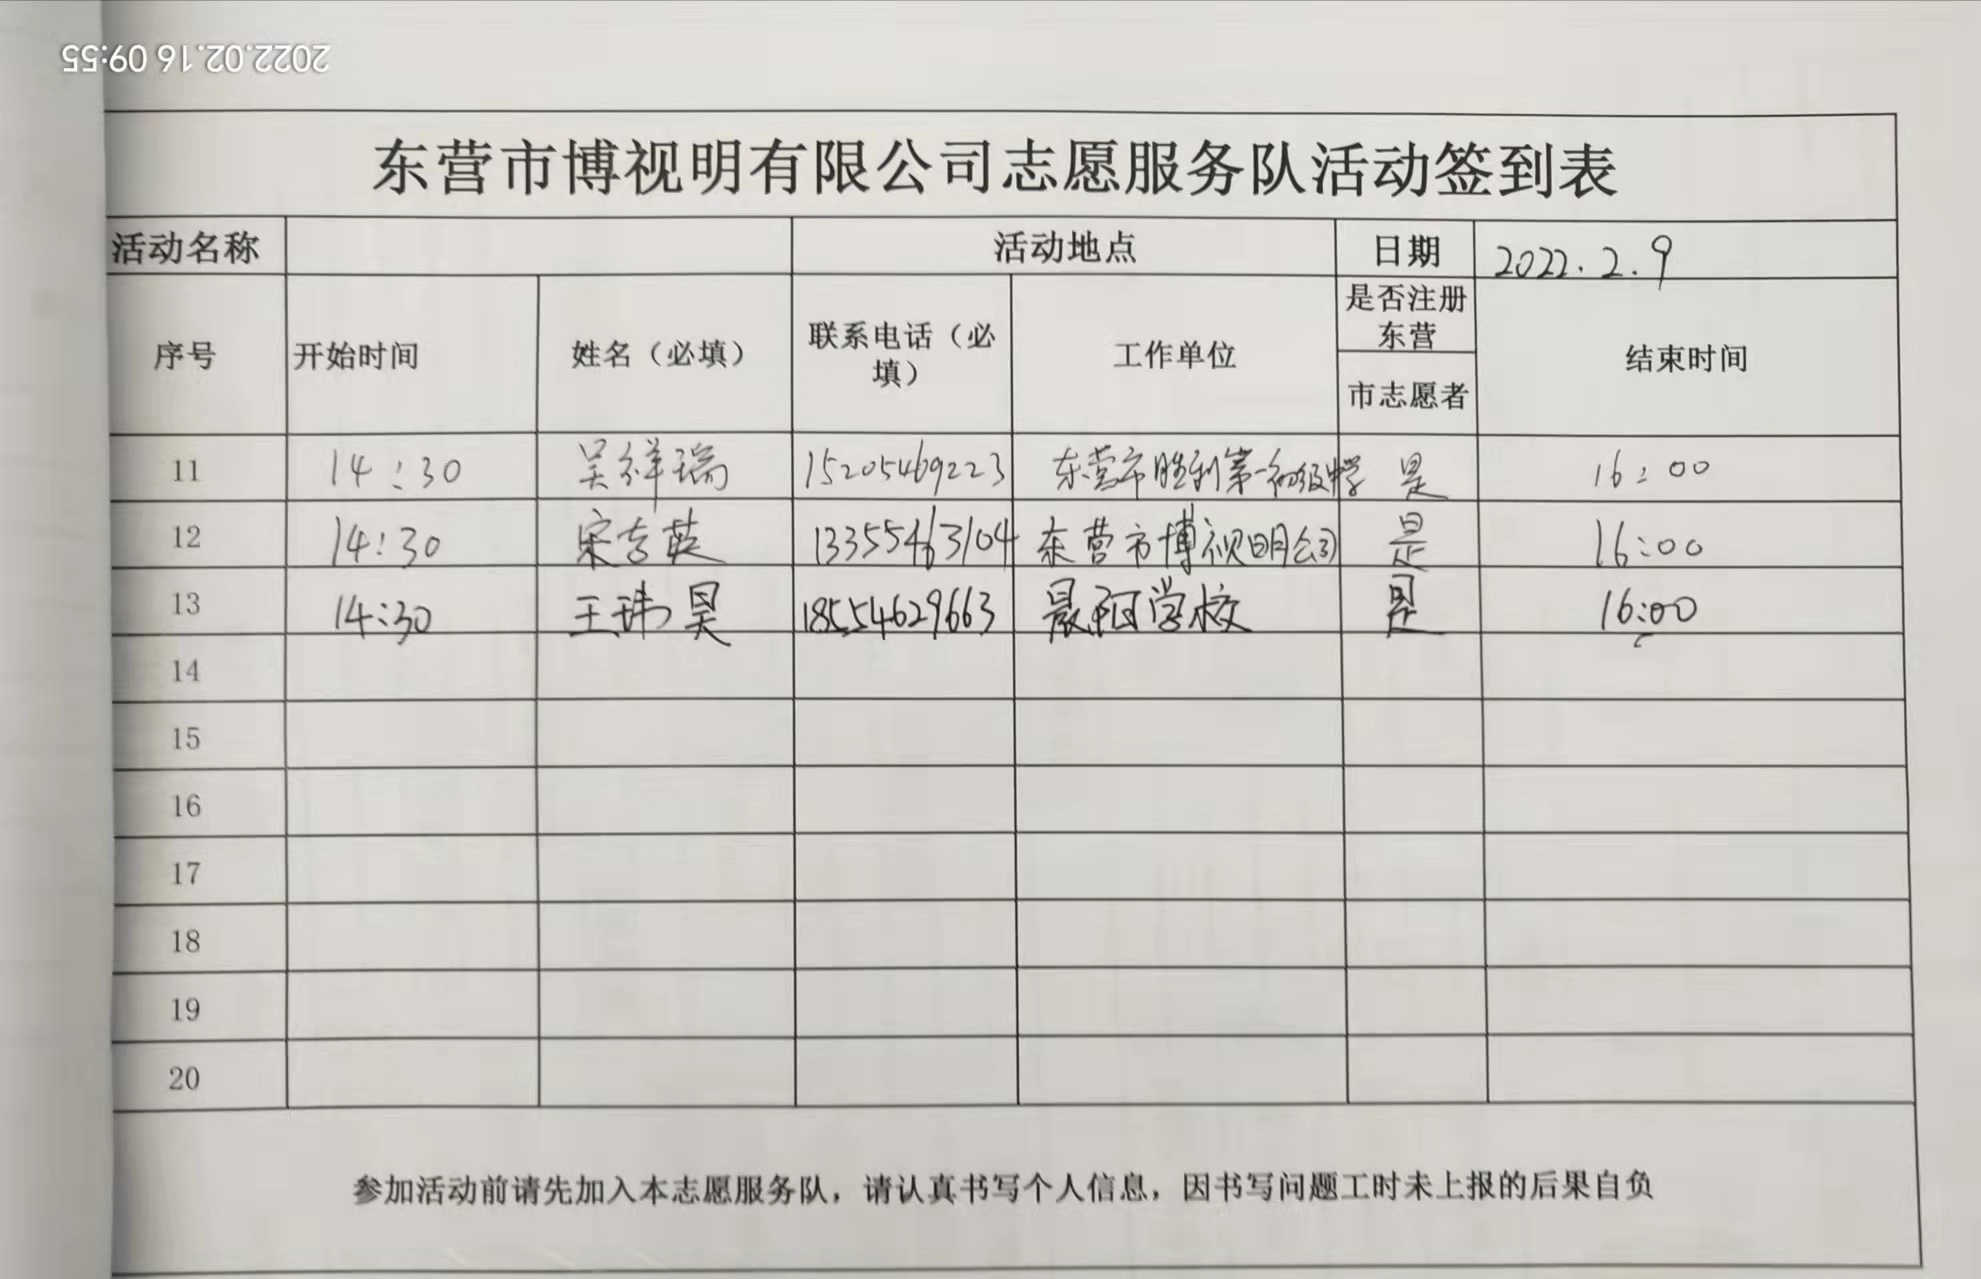 2022.02.16 09:55
东营市博视明有限公司志愿服务队活动签到表
活动名称 活动地点 日期 2022.2.9
序号 开始时间 姓名（必填） 联系电话（必填） 工作单位 是否注册东营市志愿者 结束时间
11 14:30 吴祥瑞 15205469223 东营市胜利第一初级中学 是 16:00
12 14:30 宋吉英 13355463104 东营市博视明公司 是 16:00
13 14:30 王玮昊 18554629663 晨阳学校 是 16:00
14
15
16
17
18
19
20
参加活动前请先加入本志愿服务队，请认真书写个人信息，因书写问题工时未上报的后果自负